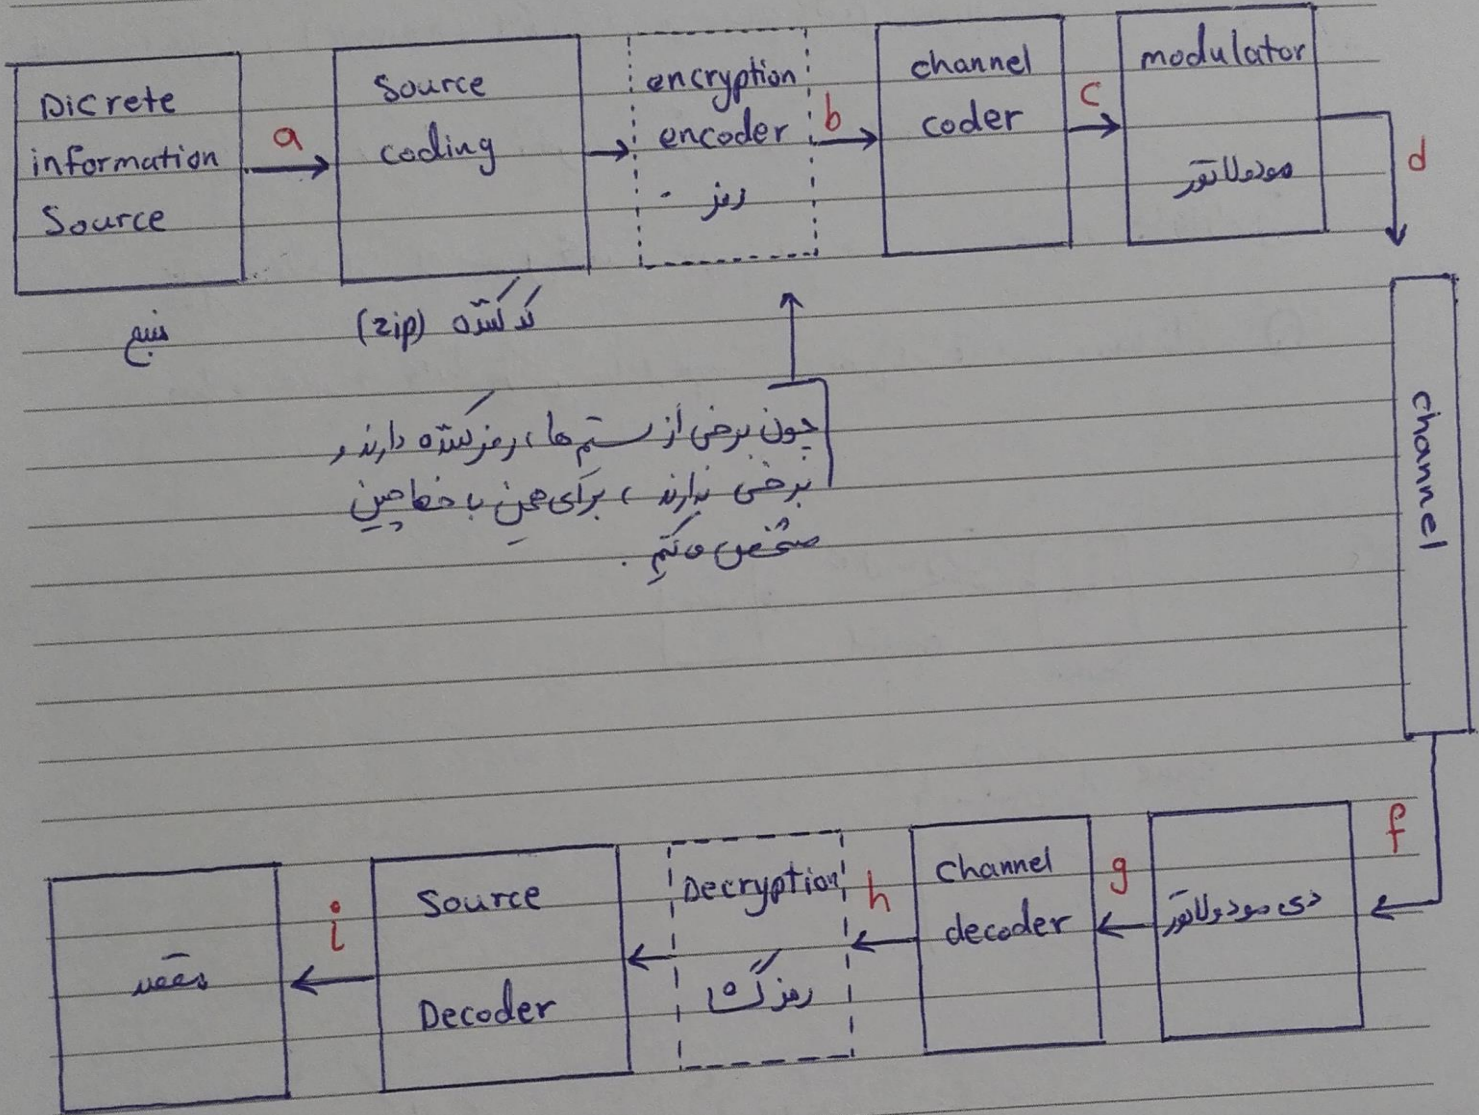 Dicrete
information
Source
a
Source
coding
encryption
encoder
رمز
b
channel
coder
c
modulator
مودولاتور
d
منبع
کد کننده (zip)
چون برخی از ستم ها، رمز کننده دارند و
برخی ندارند، برای همین با خط چین
مشخص می کنیم.
channel
f
دی مودولاتور
g
channel
decoder
h
Decryption
رمزگشا
Source
Decoder
i
مقصد